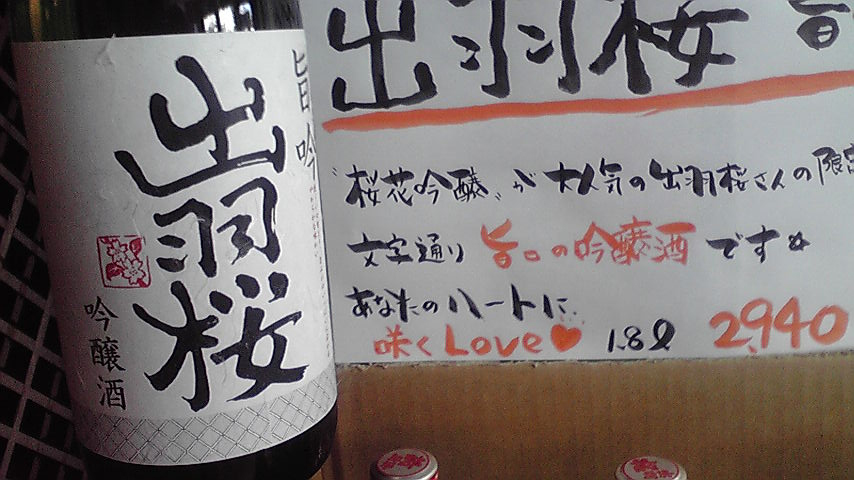 出羽桜
旨吟
吟醸酒
出羽桜 旨
"桜花吟醸"が大人気の出羽桜さんの限定
文字通り 旨口の吟醸酒です☆
あなたのハートに…
咲くLove♥ 1.8ℓ 2,940